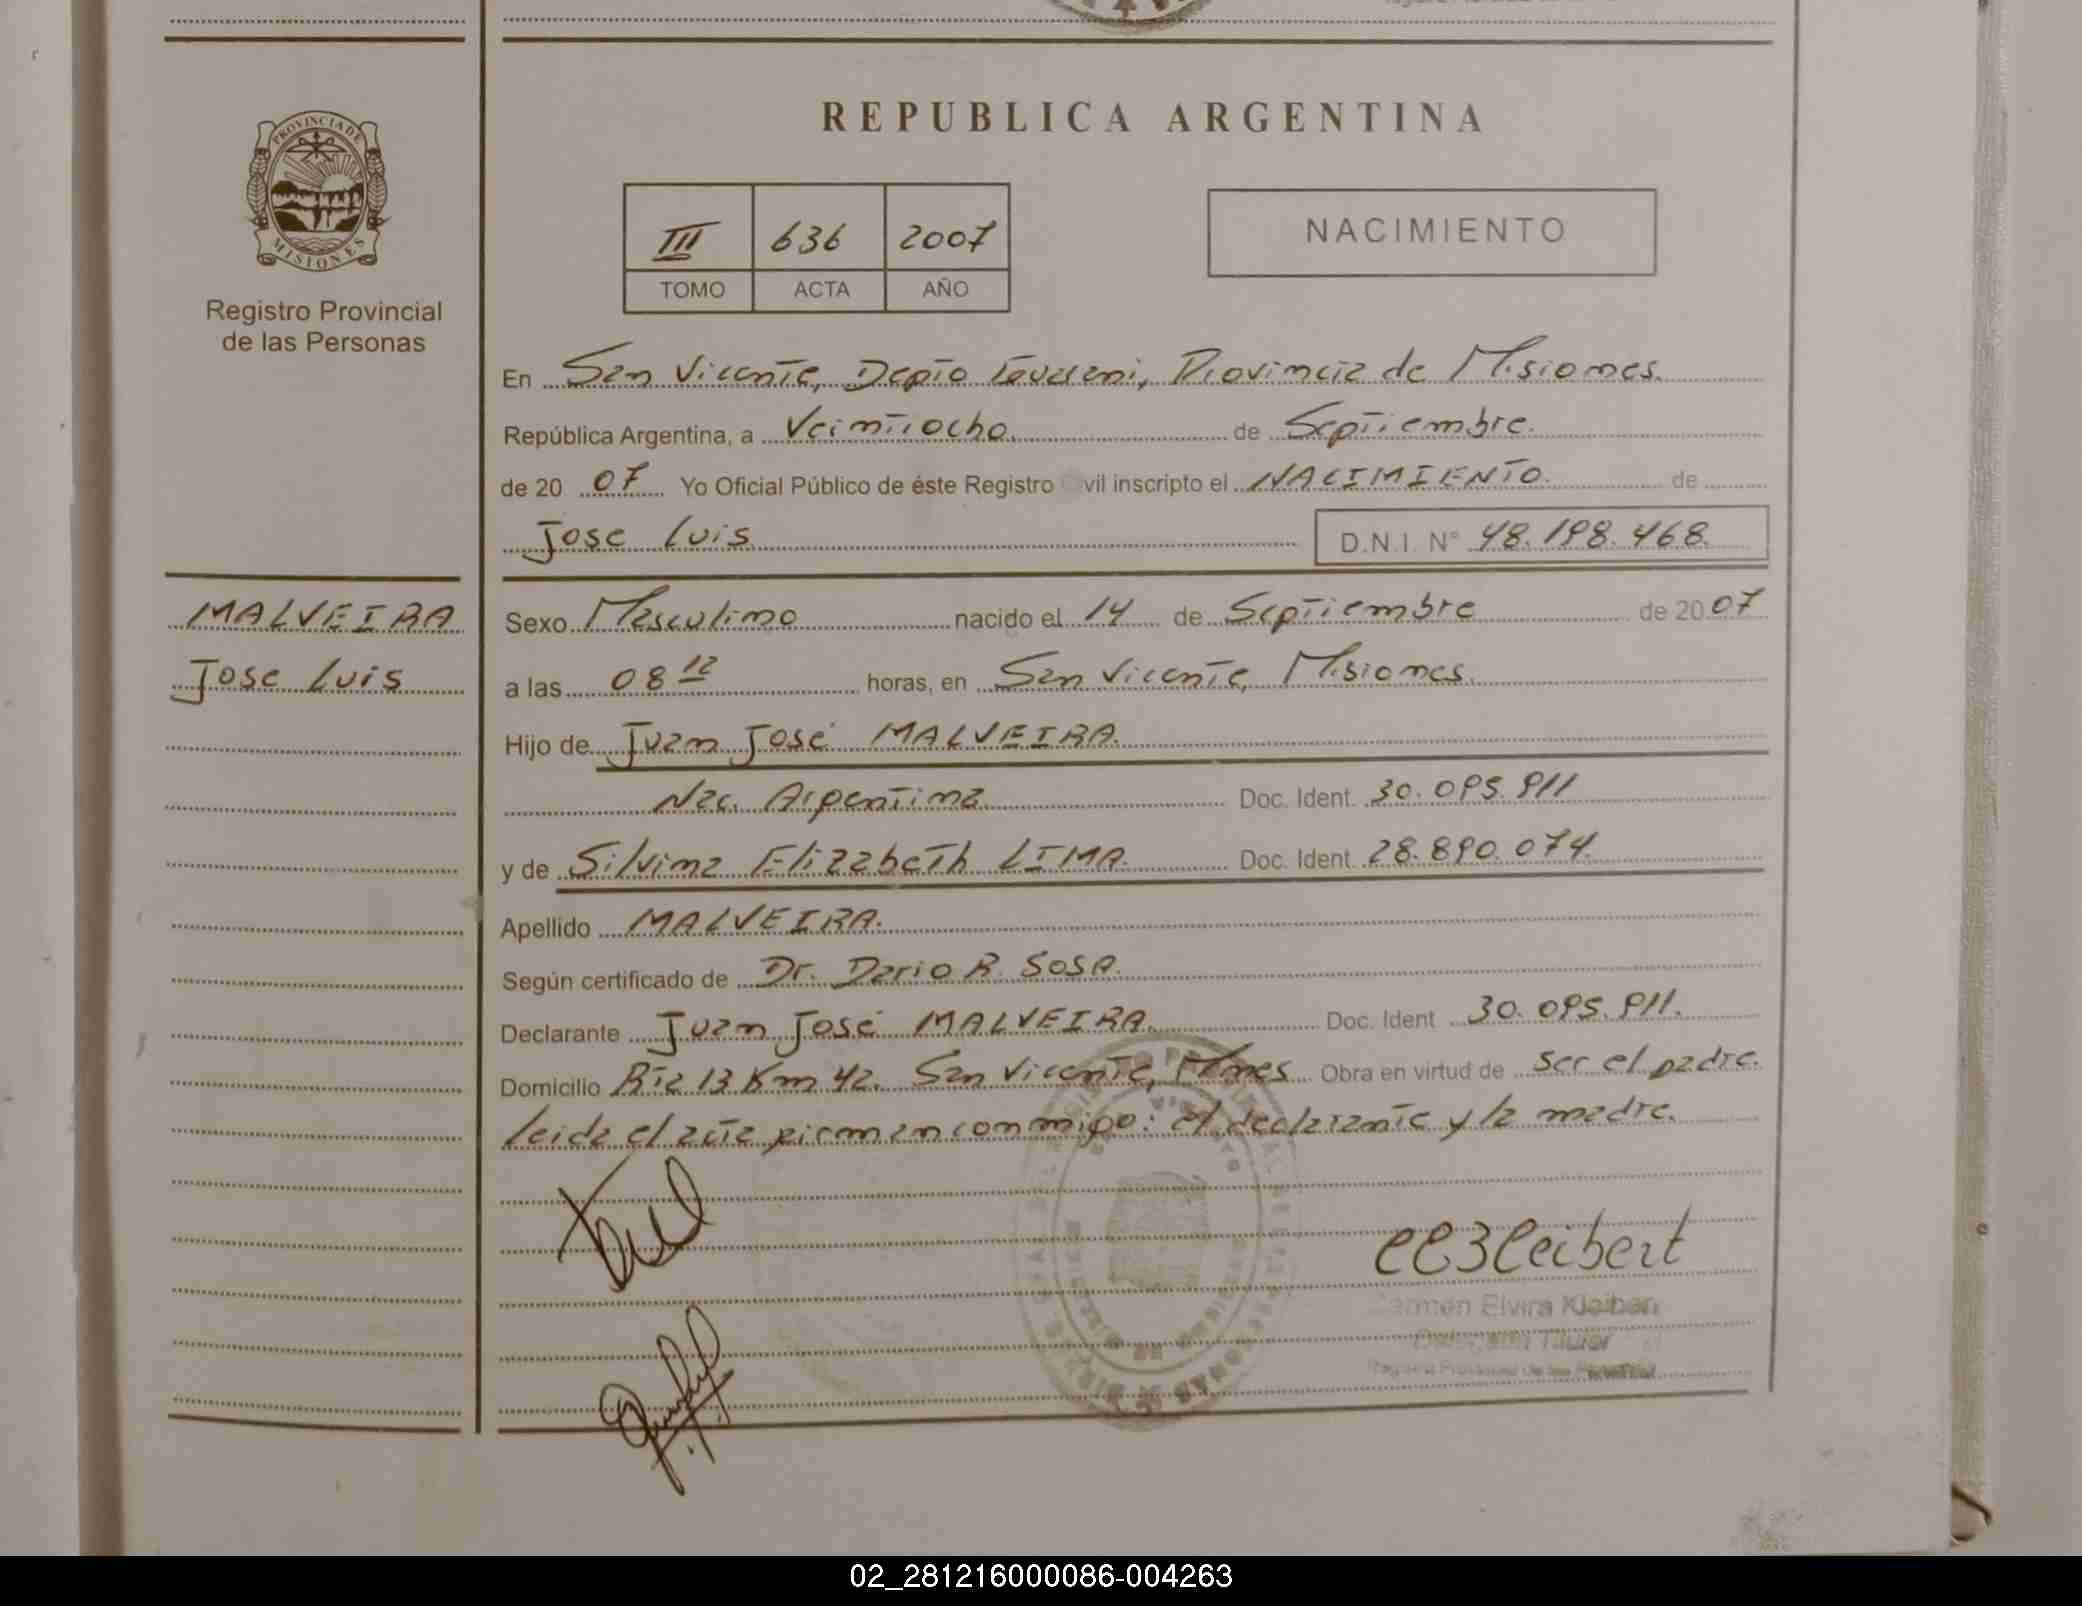 REPUBLICA ARGENTINA
PROVINCIA DE
MISIONES
Registro Provincial
de las Personas
III 636 2007
TOMO ACTA AÑO
NACIMIENTO
En San Vicente, Depto Guarani, Provincia de Misiones.
República Argentina, a Veintiocho. de Septiembre.
de 20 07 Yo Oficial Público de éste Registro Civil inscripto el NACIMIENTO. de
Jose Luis D.N.I. N° 48.198.468.
MALVEIRA
Jose Luis
Sexo Masculino nacido el 14 de Septiembre de 20 07
a las 08 12 horas, en San Vicente, Misiones.
Hijo de Juan José MALVEIRA.
Nac. Argentina Doc. Ident. 30.095.911
y de Silvina Elizabeth LIMA. Doc. Ident. 28.890.074.
Apellido MALVEIRA.
Según certificado de Dr. Dario R. SOSA.
Declarante Juan José MALVEIRA. Doc. Ident 30.095.911.
Domicilio Rta 13 Km 42. San Vicente, Mnes Obra en virtud de ser el padre.
leida el acta firman conmigo: el declarante y la madre.
Carmen Elvira Kleibert
Delegada Titular
Registro Provincial de las Personas
02_281216000086-004263